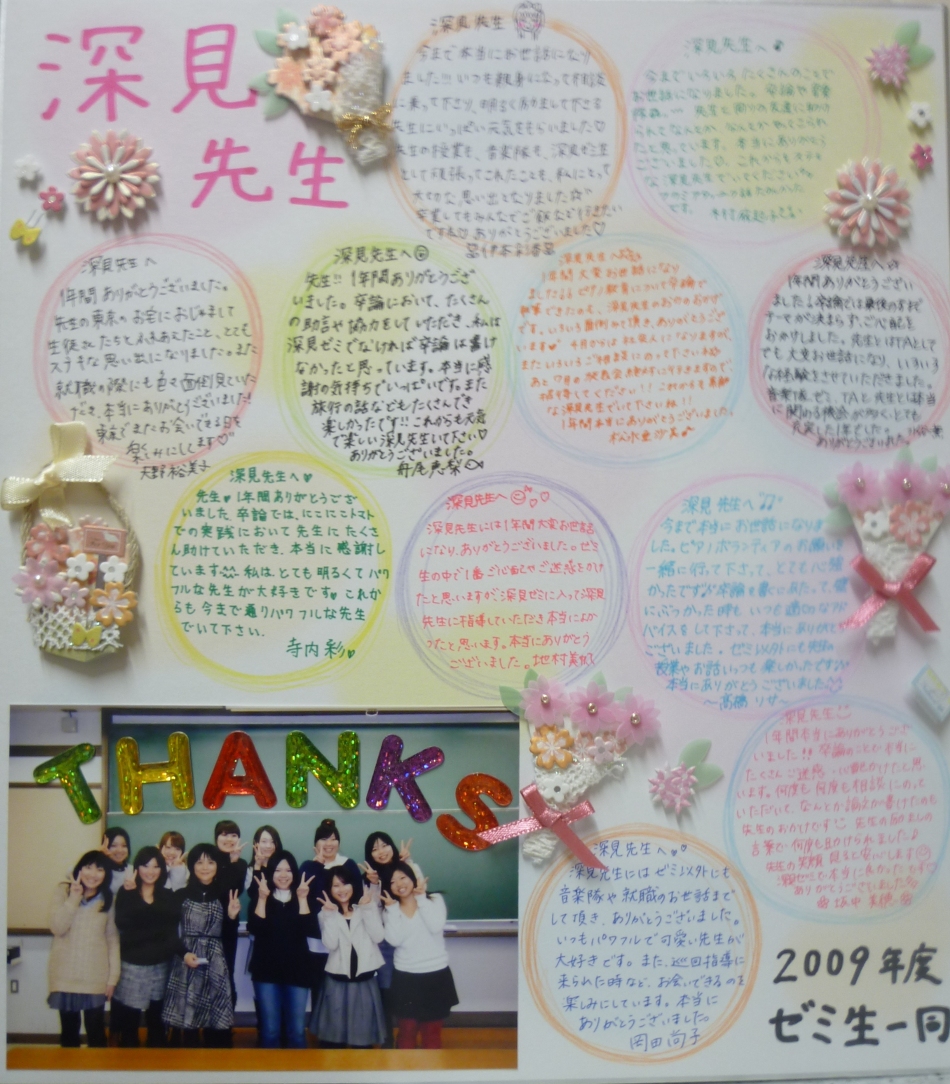 深見
先生
深見先生
今まで本当にお世話になり
ました!!いつも親身になって相談
に乗って下さり、明るく励まして下さる
先生にいっぱい元気をもらいました♡
先生の授業も、音楽隊も、深見ゼミ生
として頑張ってこれたことも、私にとって
大切な思い出となりました☆
卒業してもみんなでご飯など行きたい
です ありがとうございました♡
深見先生へ
今までいろいろたくさんのことで
お世話になりました。卒論や音楽
先生と周りの友達に助け
られてなんとか
たと思っています。本当にありがとう
ございました。これからもステキ
な深見先生でいてください
です。
深見先生へ
1年間ありがとうございました。
先生の東京のお宅におじゃまして
生徒さんたちとふれあえたこと、とても
ステキな思い出になりました。また
就職の際にも色々面倒見ていた
だき、本当にありがとうございました!
東京でまたお会いできる日を
楽しみにしてます♡
天野裕美子
深見先生へ
先生!!1年間ありがとうござ
いました。卒論において、たくさん
の助言や協力をしていただき、私は
深見ゼミでなければ卒論は書け
なかったと思っています。本当に感
謝の気持ちでいっぱいです。また
旅行の話などもたくさんでき
楽しかったです!!これからも元気
で楽しい深見先生でいて下さい♡
ありがとうございました。
舟尾恵梨
深見先生へ
1年間大変お世話になり
ました
卒業できたのも、深見先生のおかげ
です。いろいろ面倒みて頂き、ありがとうござい
ます 4月からは社会人になりますが、
またいろいろご相談にのって下さい
あと7月の発表会
招待してください!!これからも素敵
な深見先生でいて下さい
1年間本当にありがとうございました。
松永亜沙美
深見先生へ
1年間ありがとうござい
ました 卒論では最後のまで
テーマが決まらず、ご心配を
おかけしました。先生にはTAとして
でも大変お世話になり、いろいろ
な経験をさせていただきました。
音楽隊、ゼミ、TAと先生とは本当
に関わる機会が多く、とても
充実した1年でした。
ありがとうございました。
深見先生へ♥
先生♥1年間ありがとうござ
いました。卒論では、にこにこトマト
での実践において先生にたくさ
ん助けていただき、本当に感謝し
ています 私は、とても明るくてパワ
フルな先生が大好きです♥これか
らも今まで通りパワフルな先生
でいて下さい。
寺内彩
深見先生へ
深見先生には1年間大変お世話
になり、ありがとうございました。ゼミ
生の中で1番ご心配やご迷惑をかけ
たと思いますが、深見ゼミに入って深見
先生に指導していただき本当によか
ったと思います。本当にありがとう
ございました。地村美帆
深見先生へ♫
今まで本当にお世話になりま
した。ピアノボランティアのお願いを
一緒に行って下さって、とても心強
かったです 卒論を書くに当たって、壁
にぶつかった時も、いつも適切なアド
バイスをして下さって、本当にありがとう
ございました。ゼミ以外にも先生の
授業やお話いつも楽しかったです
本当にありがとうございました
〜高橋リサ〜
深見先生
1年間本当にありがとうござ
いました!!卒論のことで本当に
たくさんご迷惑・心配かけたと思
います。何度も何度も相談にのって
いただいて、なんとか論文が書けたのも
先生のおかげです 先生の励ましの
言葉で何度も助けられました♪
先生の笑顔見ると安心します
深見ゼミで本当に良かったです
ありがとうございました
坂中美穂
THANKS
深見先生へ
深見先生にはゼミ以外にも
音楽隊や就職のお世話まで
して頂き、ありがとうございました。
いつもパワフルで可愛い先生が
大好きです。また、巡回指導に
来られた時など、お会いできるのを
楽しみにしています。本当に
ありがとうございました。
岡田尚子
2009年度
ゼミ生一同